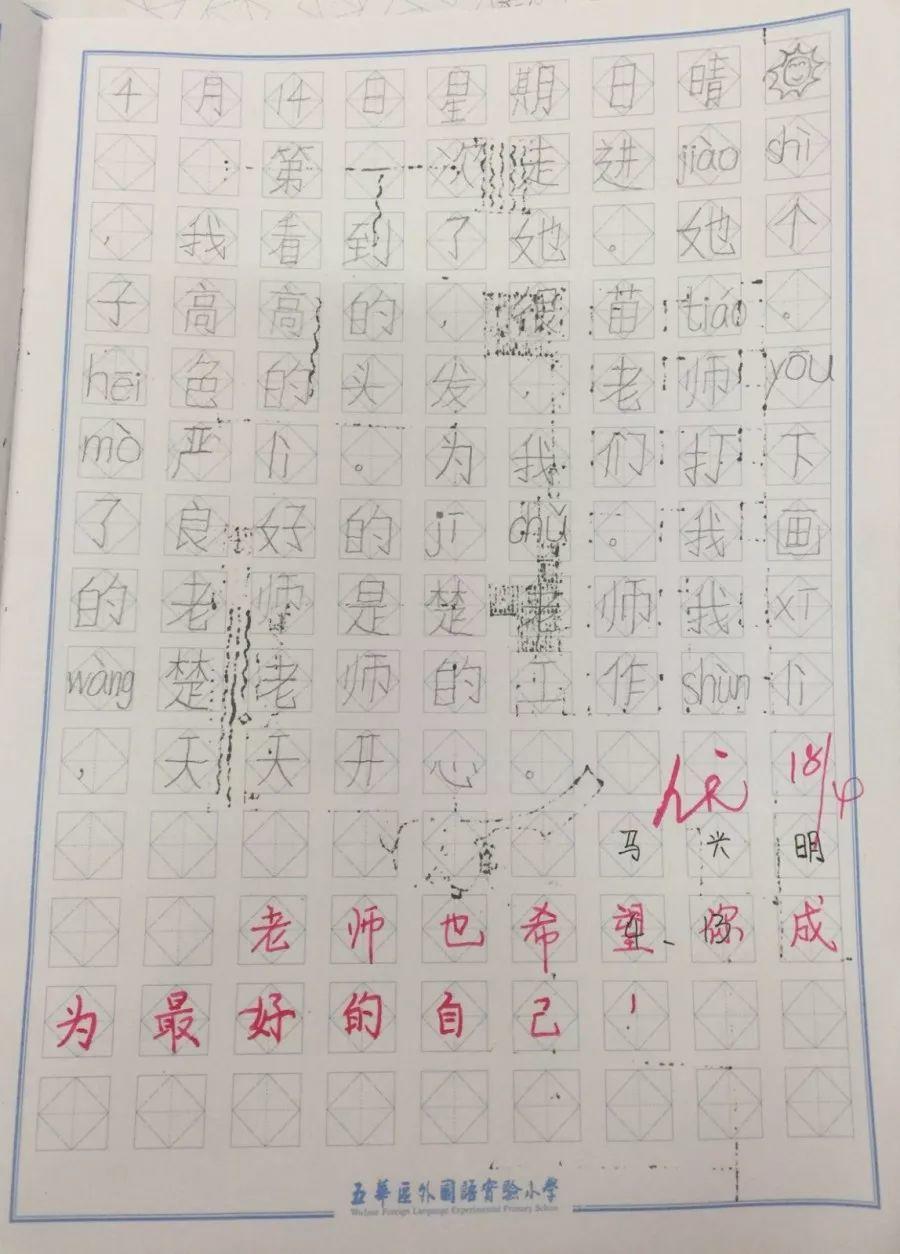 4月14日星期日晴
第一次走进jiào shì
，我看到了她。她个
子高高的，很苗tiáo。
hēi色的头发，老师yōu
mò严。为我们打下
了良好的jī chǔ。我画
的老师是楚老师我xī
wàng楚老师的工作shùn
，天天开心。
18/4
马兴明
老师也希望你成
为最好的自己！
五華區外國語實驗小學
Wuhua Foreign Language Experimental Primary School